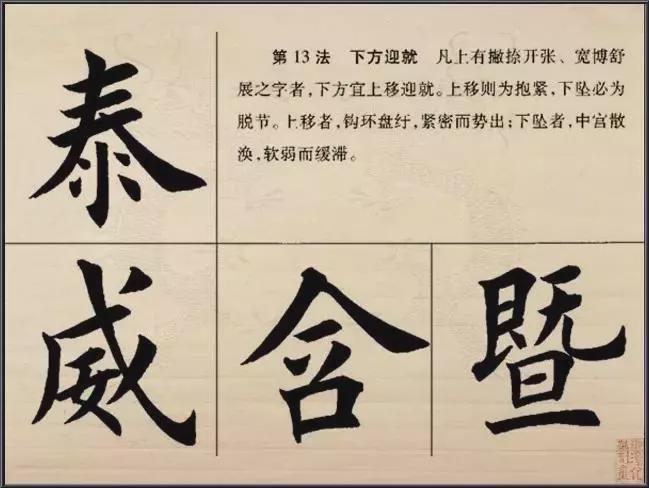 泰
第13法 下方迎就 凡上有撇捺开张、宽博舒
展之字者,下方宜上移迎就。上移则为抱紧,下坠必为
脱节。上移者,钩环盘纡,紧密而势出;下坠者,中宫散
涣,软弱而缓滞。
威 含 暨